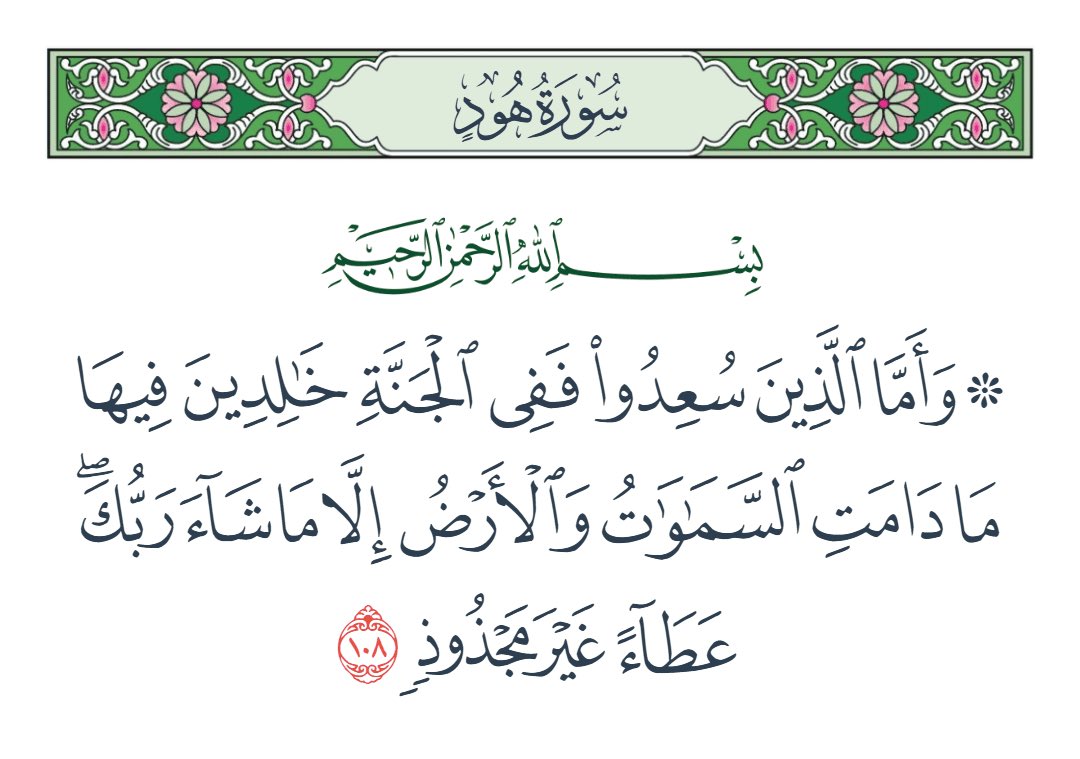 سُورَةُ هُودٍ
بِسْمِ ٱللَّهِ ٱلرَّحْمَٰنِ ٱلرَّحِيمِ
۞ وَأَمَّا ٱلَّذِينَ سُعِدُوا۟ فَفِى ٱلْجَنَّةِ خَٰلِدِينَ فِيهَا
مَا دَامَتِ ٱلسَّمَٰوَٰتُ وَٱلْأَرْضُ إِلَّا مَا شَآءَ رَبُّكَ ۖ
عَطَآءً غَيْرَ مَجْذُوذٍ ١٠٨